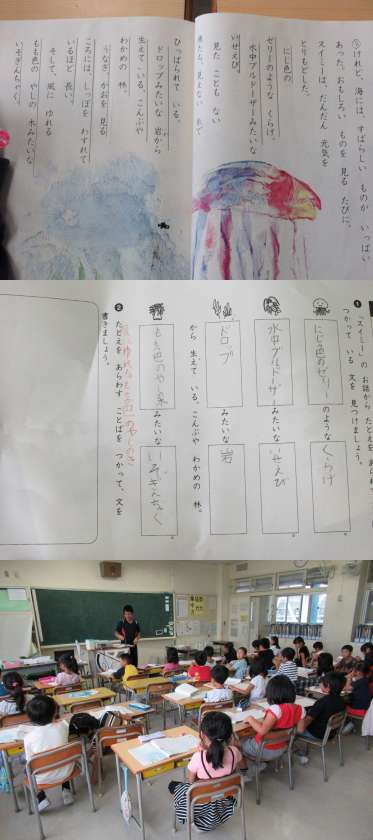 ⑤けれど、海には、すばらしい ものが いっぱい
あった。おもしろい ものを 見る たびに、
スイミーは、だんだん 元気を
とりもどした。
にじ色の
ゼリーのような くらげ。
水中ブルドーザーみたいな
いせえび。
見た ことも ない
魚たち。見えない 糸で
ひっぱられて いる。
ドロップみたいな 岩から
生えて いる、こんぶや
わかめの 林。
うなぎ。かおを 見る
ころには、しっぽを わすれて
いるほど 長い。
そして、風に ゆれる
もも色の やしの 木みたいな
いそぎんちゃく。
❶ 「スイミー」の お話から たとえを あらわ
つかって いる 文を 見つけましょう。
にじ色のゼリー のような くらげ 。
水中ブルドーザー みたいな いせえび 。
ドロップ みたいな 岩
から 生えて いる、こんぶや わかめの 林。
もも色のやしの木 みたいな いそぎんちゃく 。
❷ たとえを あらわす ことばを つかって、文を
書きましょう。